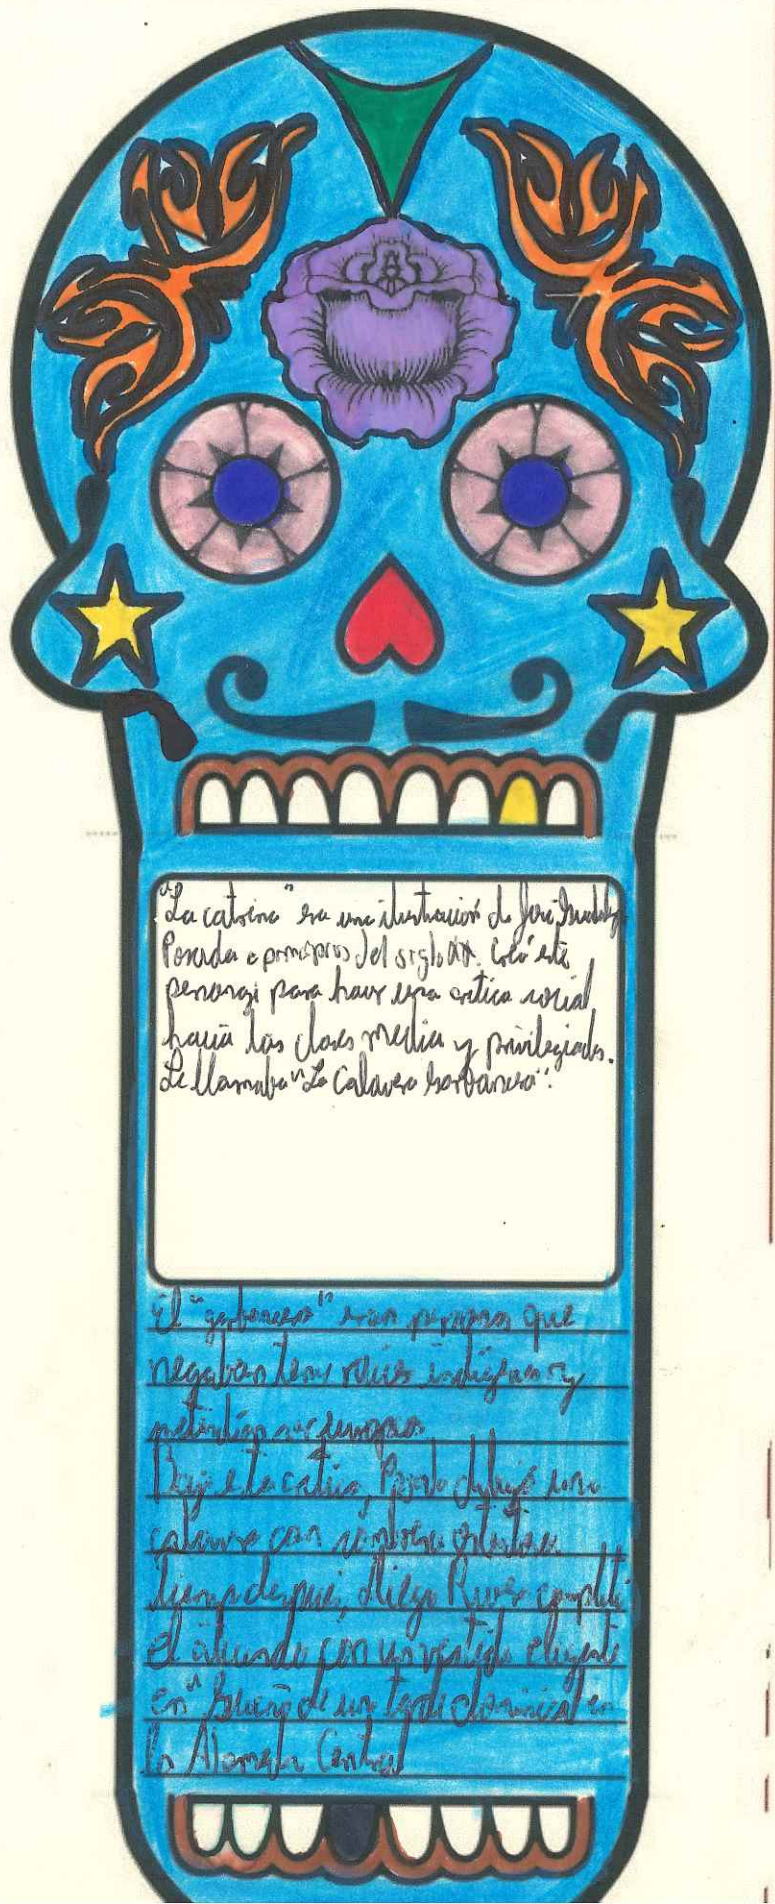 "La catrina" era una ilustración de José Guadalupe
Posada a principios del siglo XX. Creó este
personaje para hacer una crítica social
hacia las clases media y privilegiadas.
Le llamaba "La Calavera Garbancera".
El "garbancero" eran personas que
negaban tener raíces indígenas y
pretendían ser europeos
Bajo esta crítica, Posada dibujó una
calavera con sombrero
tiempo después, Diego Rivera completó
el atuendo con un vestido elegante
en "Sueño de una tarde dominical en
la Alameda Central